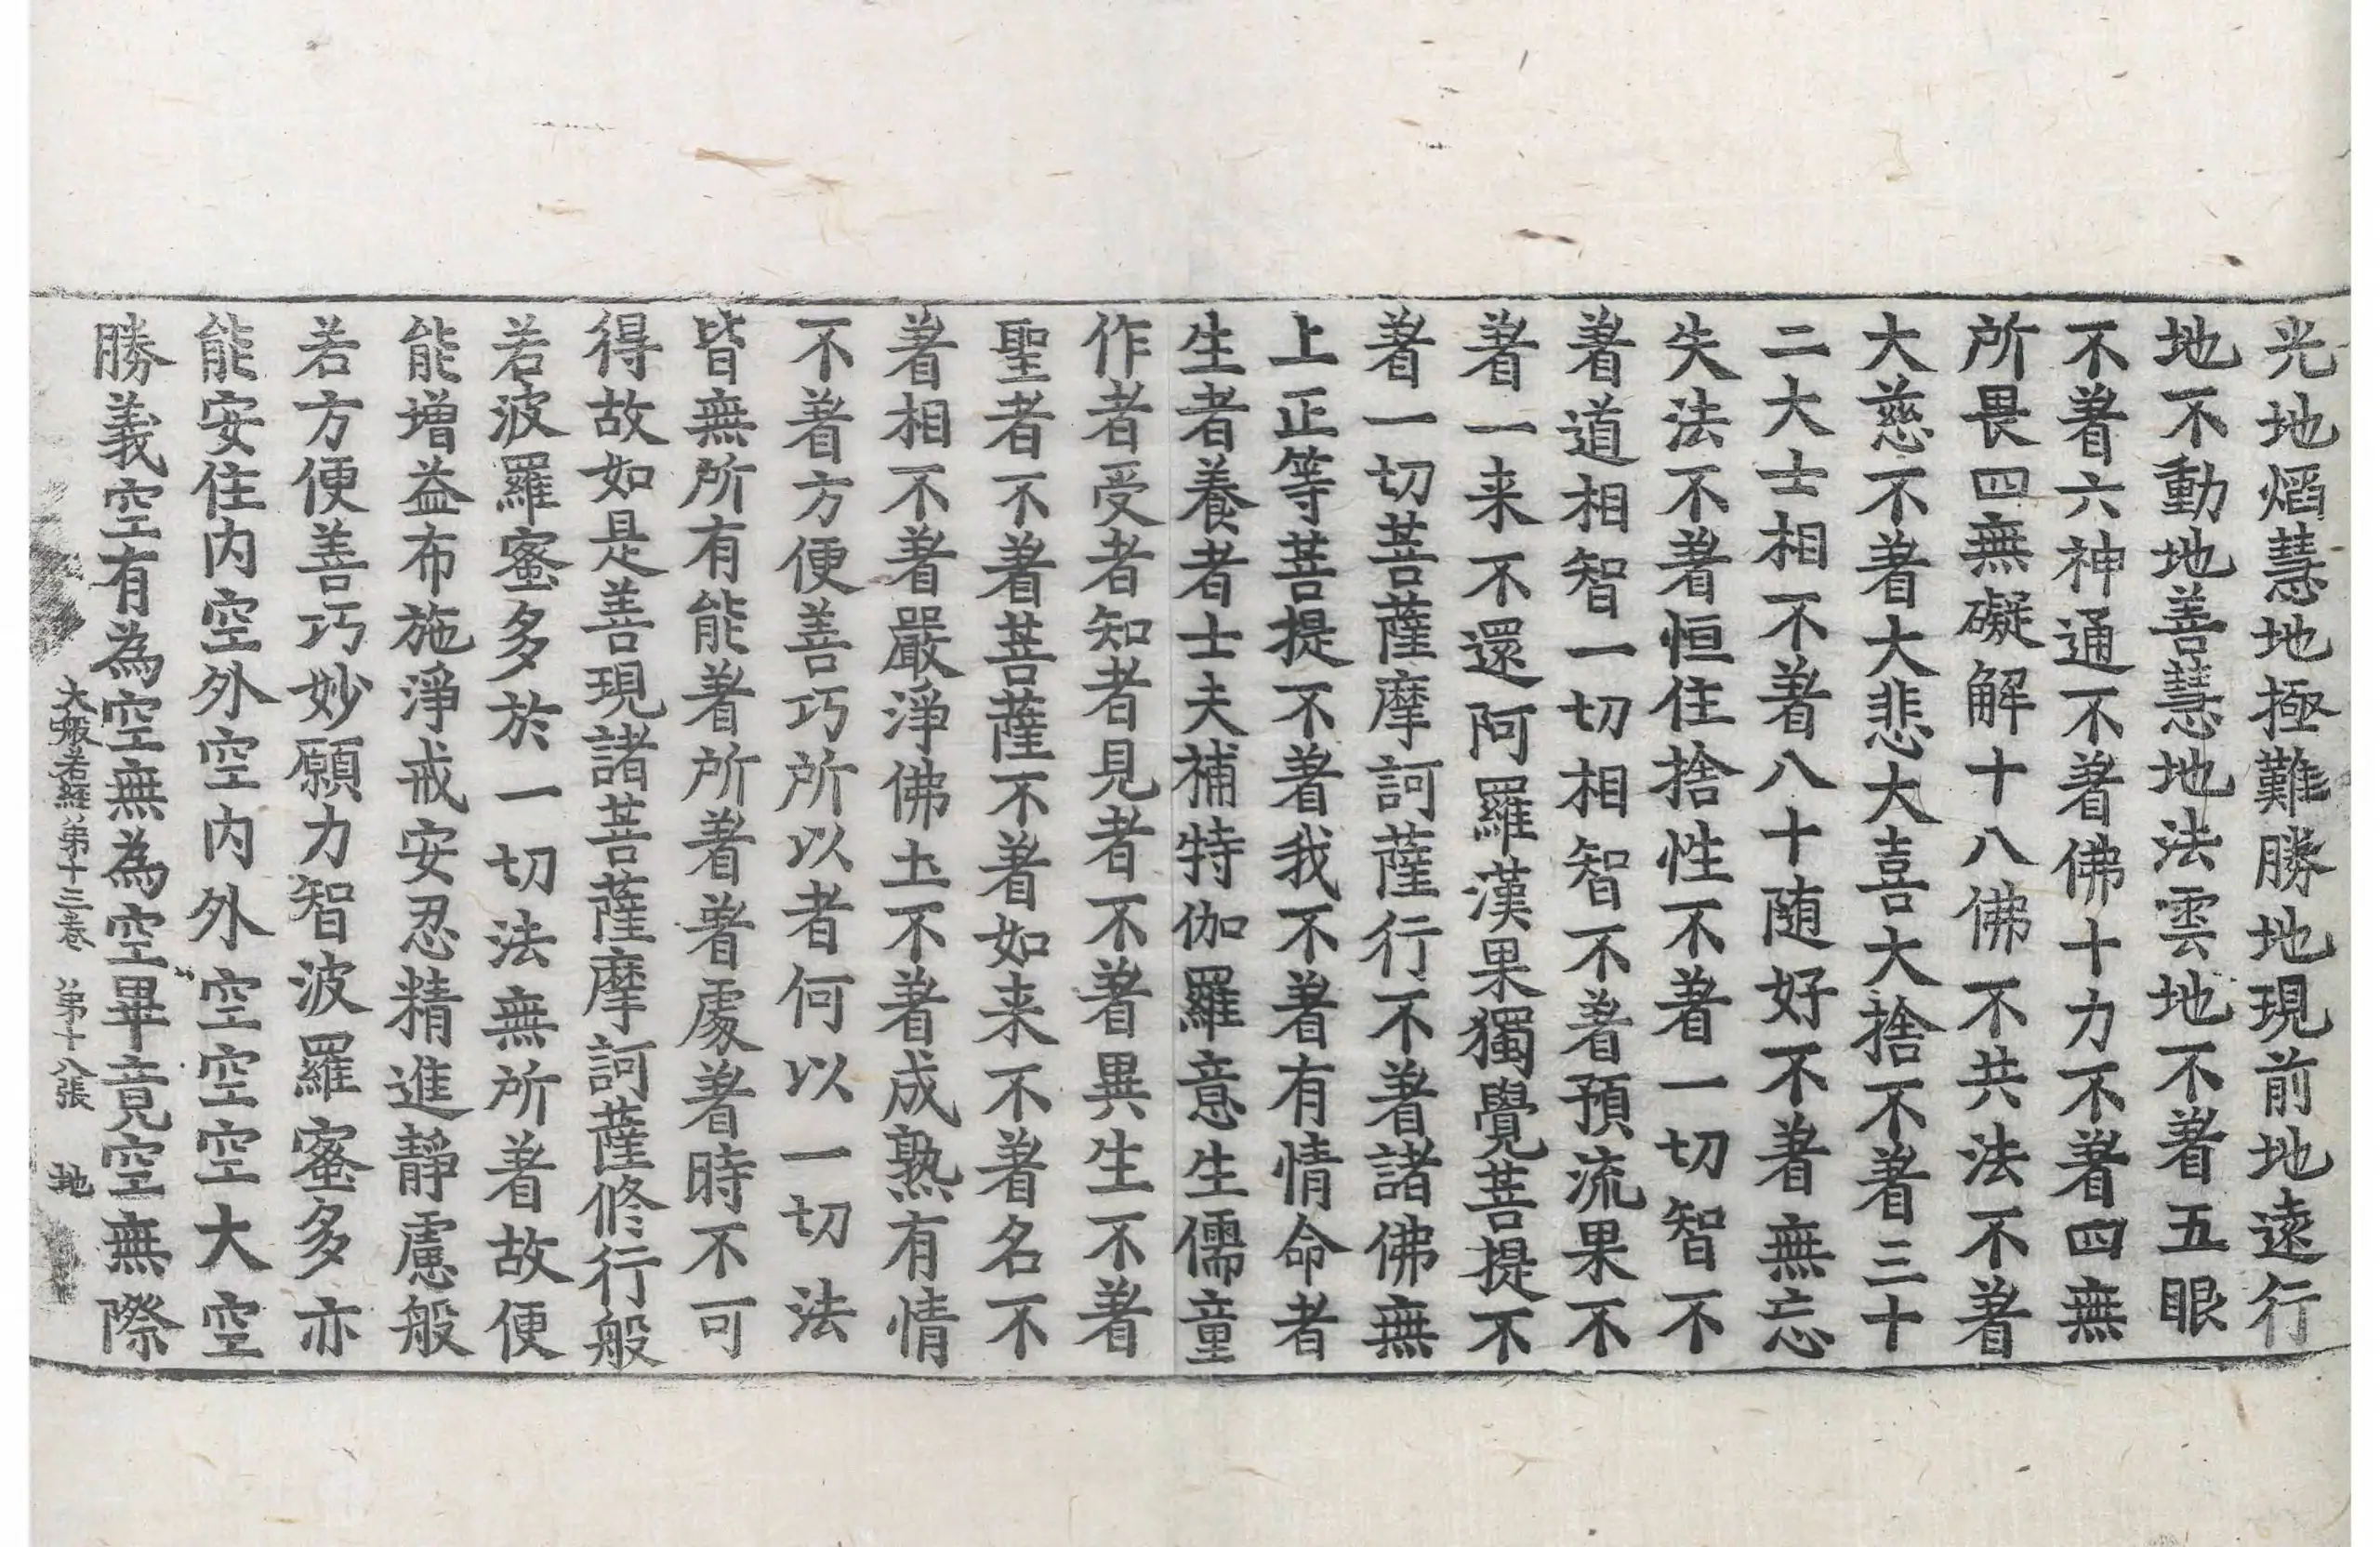 光地焰慧地極難勝地現前地遠行
地不動地善慧地法雲地不著五眼
不著六神通不著佛十力不著四無
所畏四無礙解十八佛不共法不著
大慈不著大悲大喜大捨不著三十
二大士相不著八十随好不著無忘
失法不著恒住捨性不著一切智不
著道相智一切相智不著預流果不
著一来不還阿羅漢果獨覺菩提不
著一切菩薩摩訶薩行不著諸佛無
上正等菩提不著我不著有情命者
生者養者士夫補特伽羅意生儒童
作者受者知者見者不著異生不著
聖者不著菩薩不著如来不著名不
著相不著嚴淨佛土不著成熟有情
不著方便善巧所以者何以一切法
皆無所有能著所著著處著時不可
得故如是善現諸菩薩摩訶薩修行般
若波羅蜜多於一切法無所著故便
能增益布施淨戒安忍精進靜慮般
若方便善巧妙願力智波羅蜜多亦
能安住内空外空内外空空空大空
勝義空有為空無為空畢竟空無際
大般若經第十三卷 第十八張 地